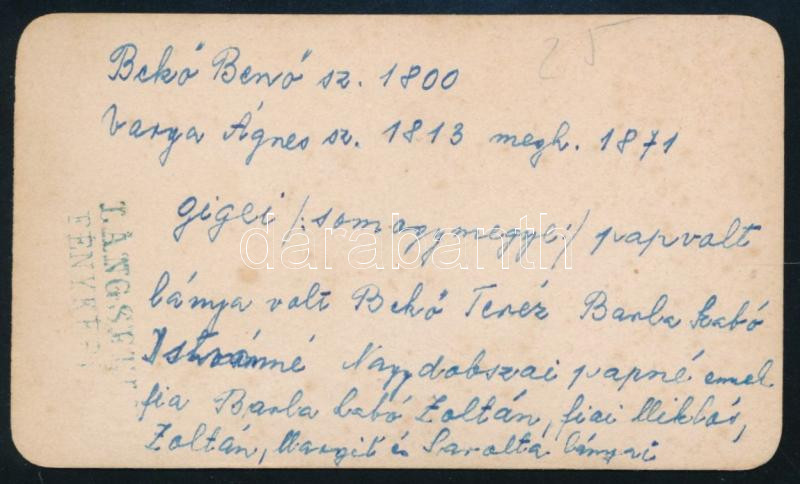 25
Bekő Benő sz. 1800
Varga Ágnes sz. 1813 megh. 1871
gigei /:somogymegyei/ papvolt
lánya volt Bekő Teréz Barla Szabó
Istvánné Nagydobszai papné ennek
fia Barla Szabó Zoltán, fiai Miklós,
Zoltán, Margit és Sarolta lányai
LÁNG SE
FÉNYKÉP
darabanth